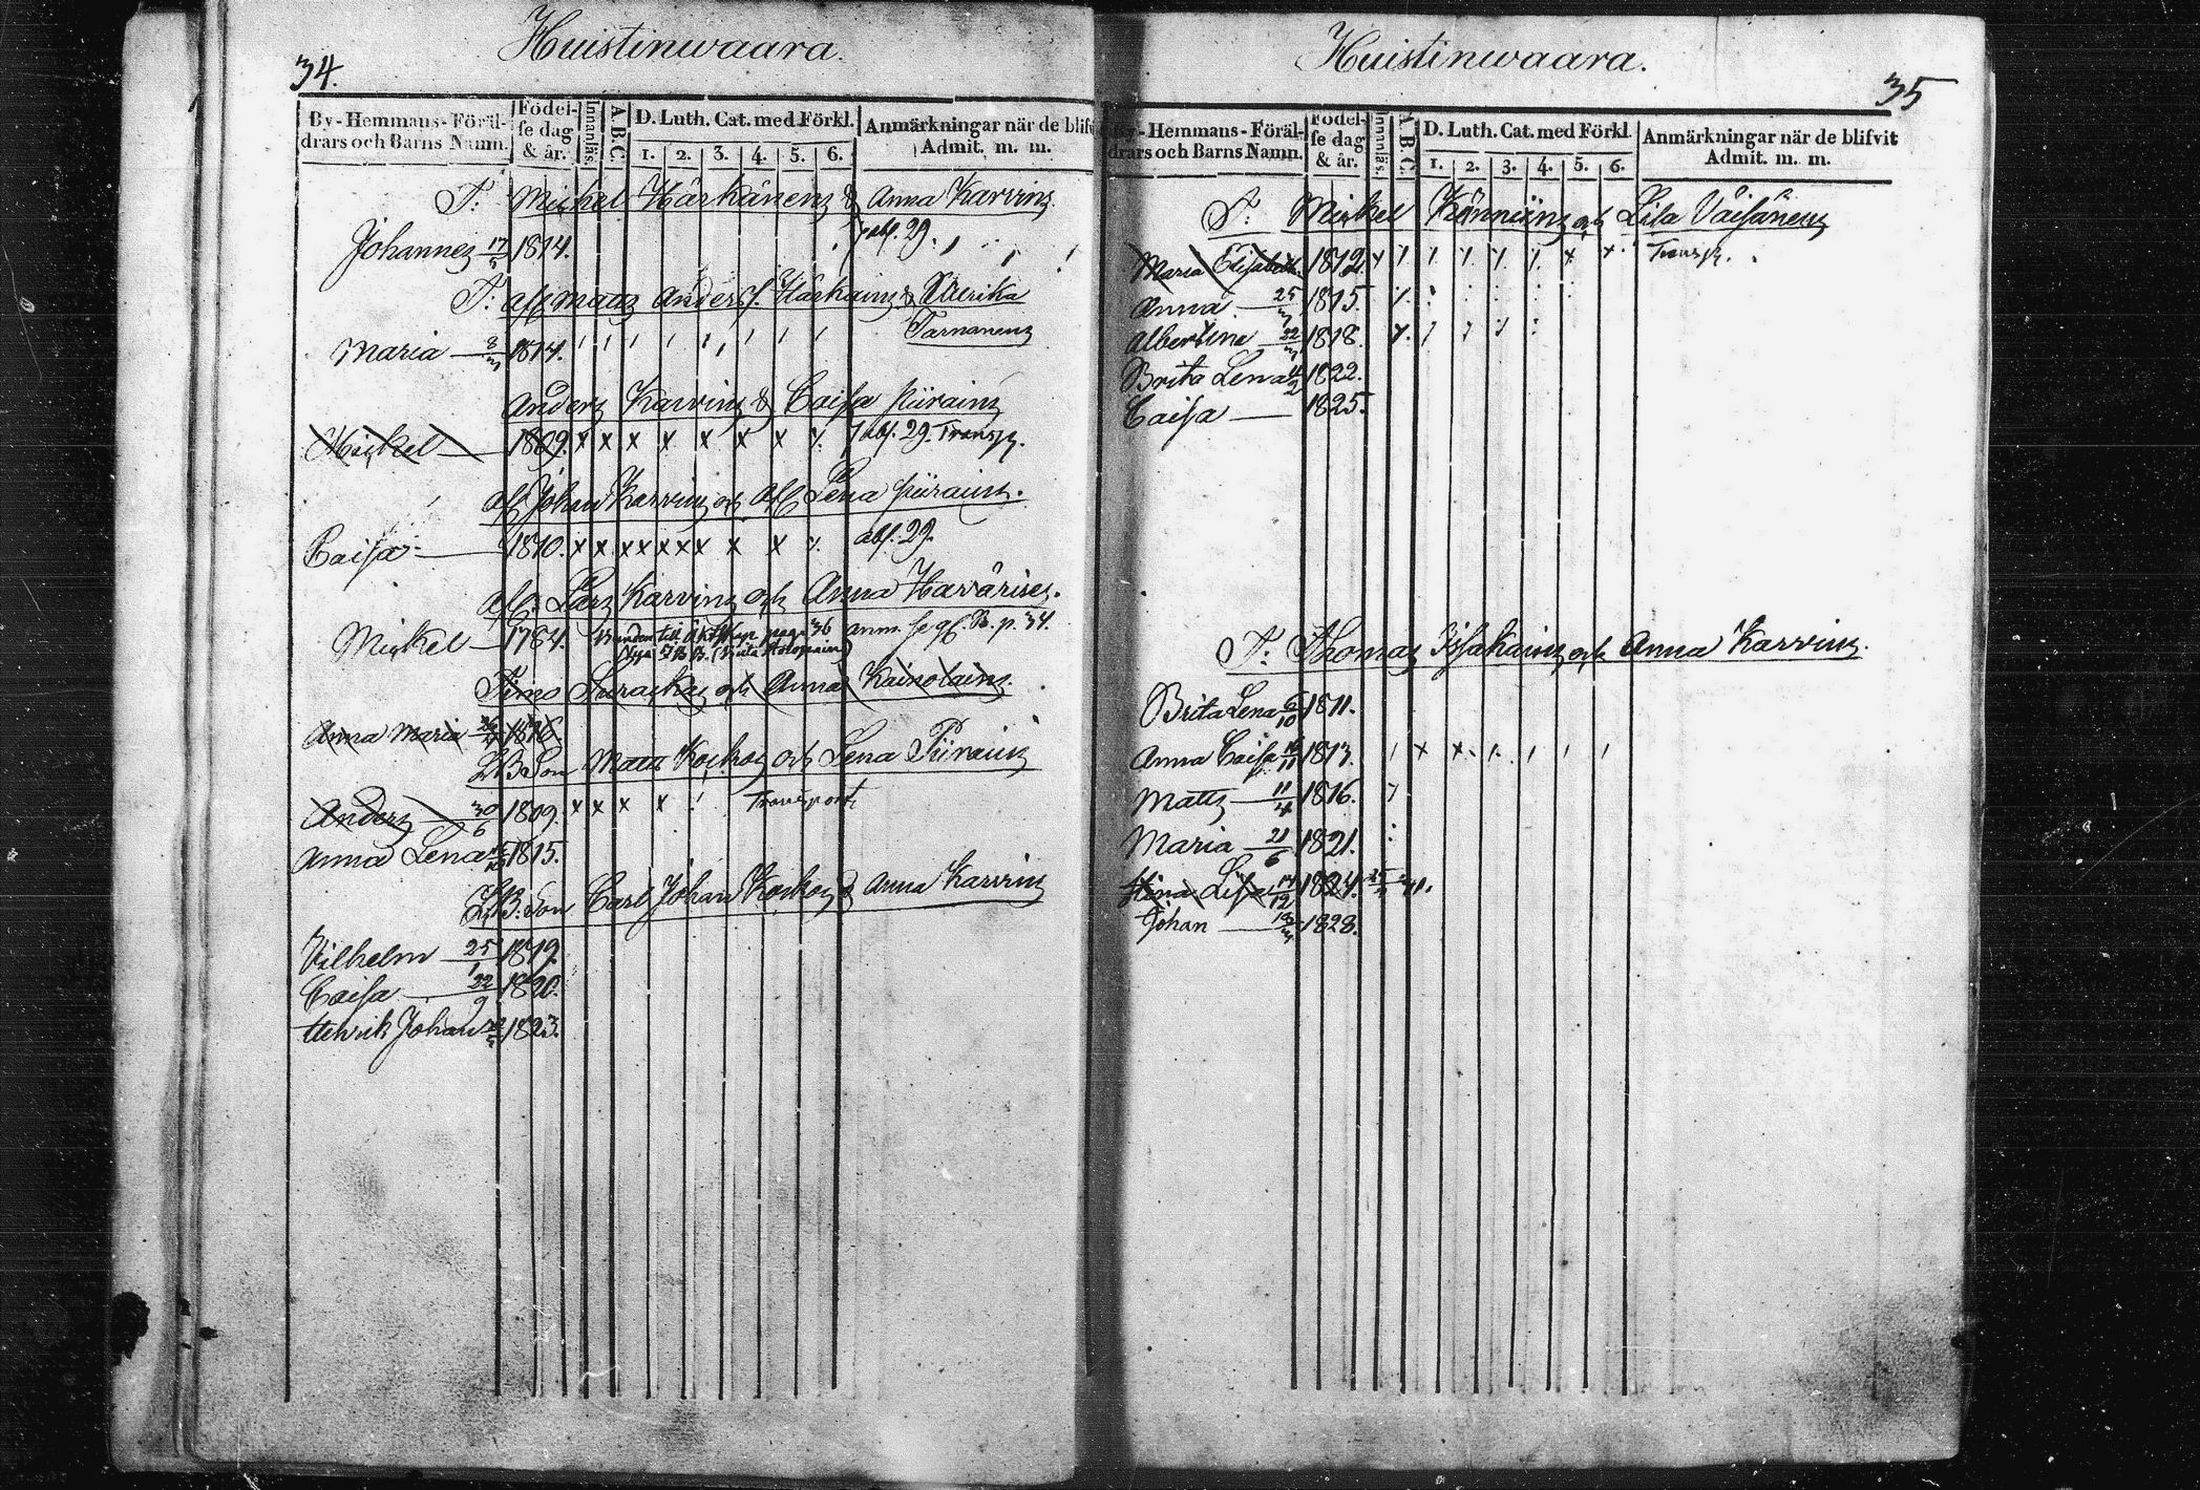 Huistinwaara.
34.
By-Hemmans-Föräl-
drars och Barns Namn.
Födel-
se dag
& år.
Innanläs.
A.B.C.
D. Luth. Cat. med Förkl.
1. 2. 3. 4. 5. 6.
Anmärkningar när de blifv
Admit. m. m.
T. Mickel Härkänens & Anna Karvins
Johannes 1814. abs. 29.
T. afl. Matts Anders s. Härkäins & Ullrika
Tarnanens
Maria 1814.
Anders Karvins & Caisa Piirains
Mickel 1809. x x x x x x x abs. 29. Transp.
afl. Johan Karvins och afl. Lena Piirains.
Caisa 1810. x x x x x x x x x abs. 29.
afl. Lars Karvins och Anna Havärises.
Mickel 1784. till pag. 36 anm. se gl. B. p. 34.
Timo Surackas och Anna Kainolains.
Anna Maria 1816.
LB. Son Matts Koskos och Lena Piirains
Anders 30/6 1809. x x x x Transport
Anna Lena 1815.
LB. Son Carl Johan Koskos & Anna Karvins
Vilhelm 25/1 1819.
Caisa 22/9 1820.
Henrik Johan 1823.
Huistinwaara.
35
By-Hemmans-Föräl-
drars och Barns Namn.
Födel-
se dag
& år.
Innanläs.
A.B.C.
D. Luth. Cat. med Förkl.
1. 2. 3. 4. 5. 6.
Anmärkningar när de blifvit
Admit. m. m.
T. Mickel Könnöins och Lisa Väisänens
Maria Elisabeth 1812. Transp.
Anna 1815.
Albertina 1818.
Brita Lena 1822.
Caisa 1825.
T. Thomas Issakains och Anna Karvins.
Brita Lena 1811.
Anna Caisa 1813. x x
Matts 11/4 1816.
Maria 21/6 1821.
Stina Lisa 17/12 1824.
Johan 1828.